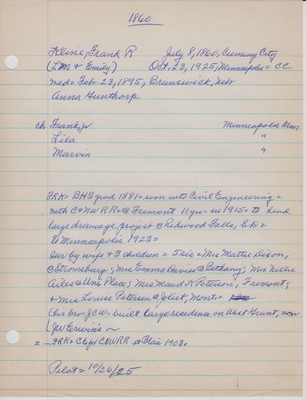 1860
Kline, Frank R July 8, 1860, Cuming City
(L.M. & Emily) Oct. 23, 1925, Minneapolis = CC
med = Feb. 23, 1895, Brunswick, Nebr
Anna Gunthorp
ch Frank, Jr Minneapolis Minn
Lila "
Marvin "
FRK = BHS grad 1881 = soon into Civil Engineering =
with C&NW RR @ Fremont 11 yrs = in 1915 = to head
large drainage project @ Redwood Falls, S.D. =
to Minneapolis 1923 =
Sur by wife & 3 children = 5 sis = Mrs Mattie Dixon,
@ Stromsburg; Mrs Emma @ Bethany; Mrs Nellie
Ailes @ Uni Place; Mrs Maud K Peterson, Fremont;
& Mrs Louise Petersen @ Joliet, Mont =
(his bro J.C.W. built large residence on West Grant, now
J.W. Erwin's ~
= FRK = C&NWRR at Blair 1903 =
Pilot = 10/26/25